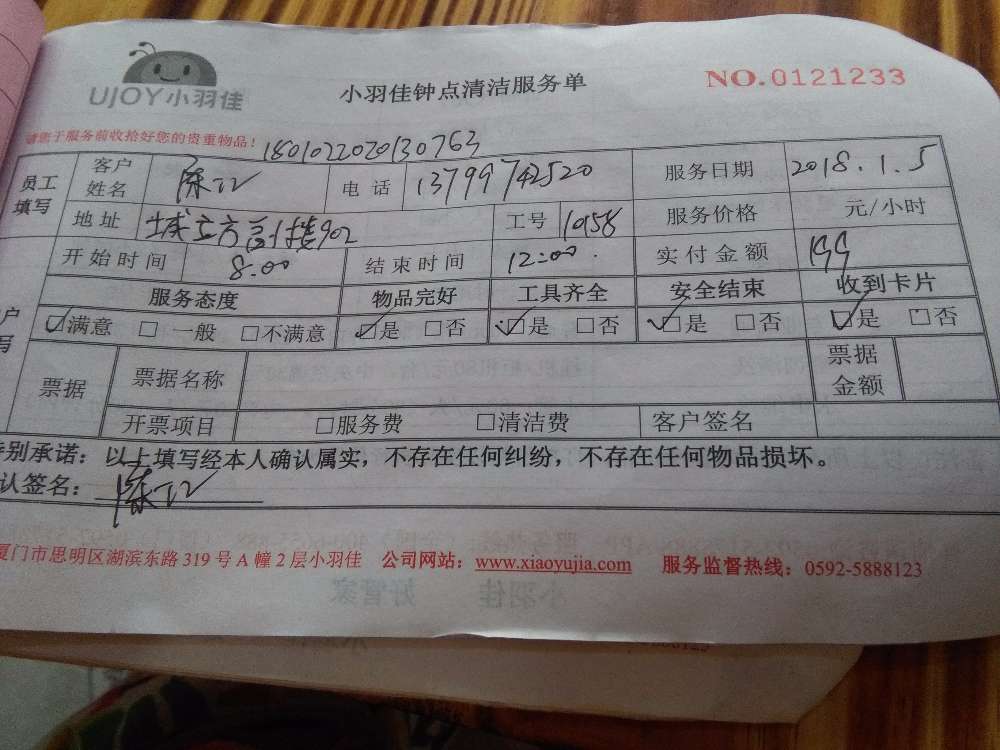 UJOY小羽佳 小羽佳钟点清洁服务单 NO.0121233
请您于服务前收拾好您的贵重物品! 1801022020130763
员工填写 客户姓名 陈 电话 13799742520 服务日期 2018.1.5
地址 城立方 902 工号 10158 服务价格 元/小时
开始时间 8:00 结束时间 12:00. 实付金额 199
服务态度 物品完好 工具齐全 安全结束 收到卡片
户写 ☑满意 □一般 □不满意 ☑是 □否 ☑是 □否 ☑是 □否 ☑是 □否
票据 票据名称 票据金额
开票项目 □服务费 □清洁费 客户签名
别承诺:以上填写经本人确认属实,不存在任何纠纷,不存在任何物品损坏。
认签名: 陈
厦门市思明区湖滨东路 319 号 A 幢 2 层小羽佳 公司网站:www.xiaoyujia.com 服务监督热线:0592-5888123